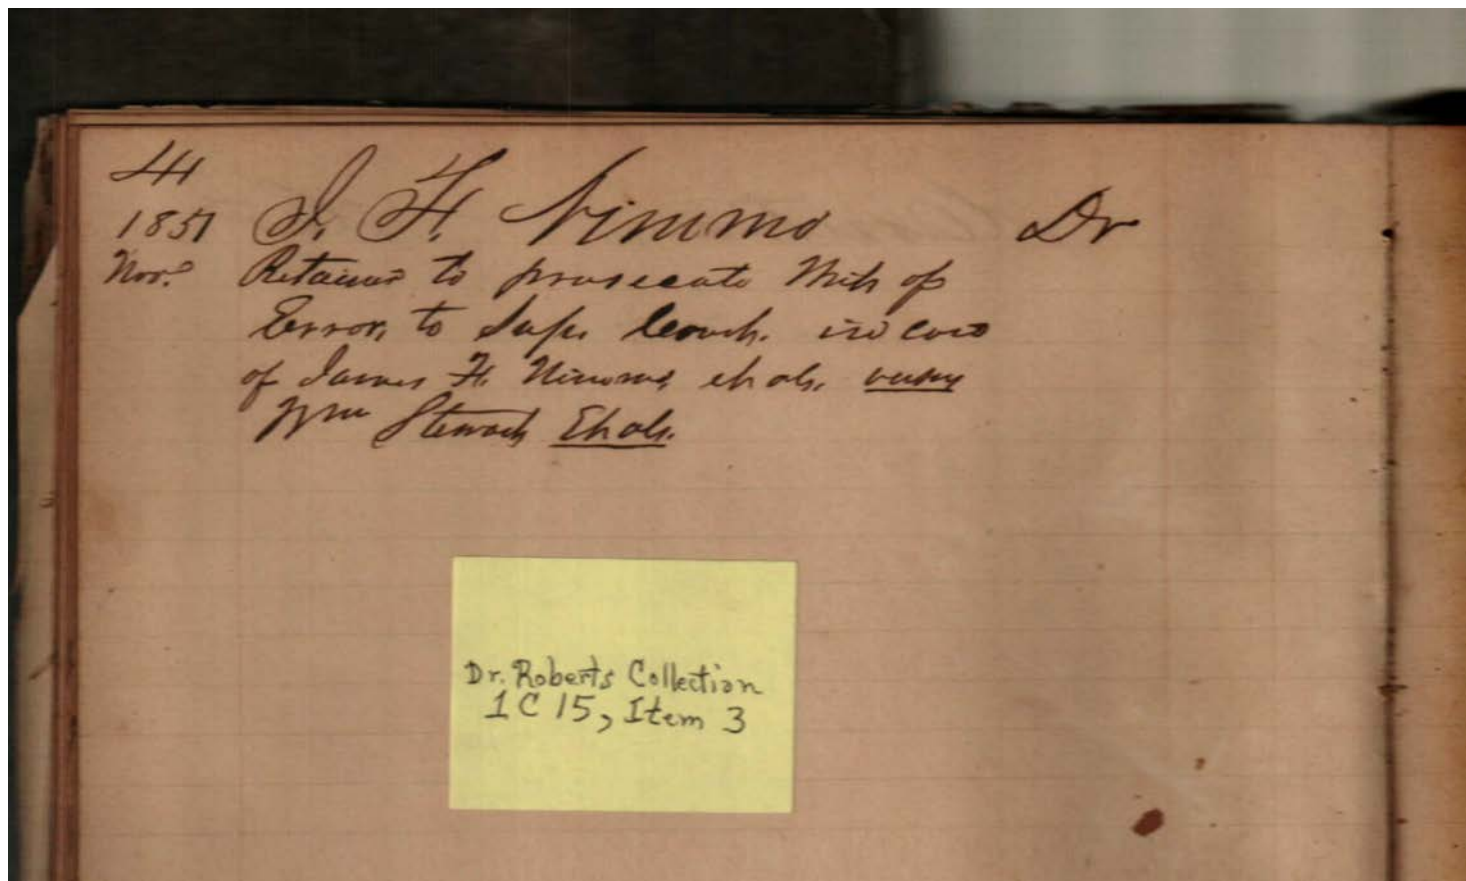 44
1851 J. F. Nimmo Dr
Nov. Retainer to prosecute Writ of
Error, to Sup. Court. in case
of James F. Nimmo, et als. versus
Wm Stewart Et als.
Dr. Roberts Collection
1 C 15, Item 3